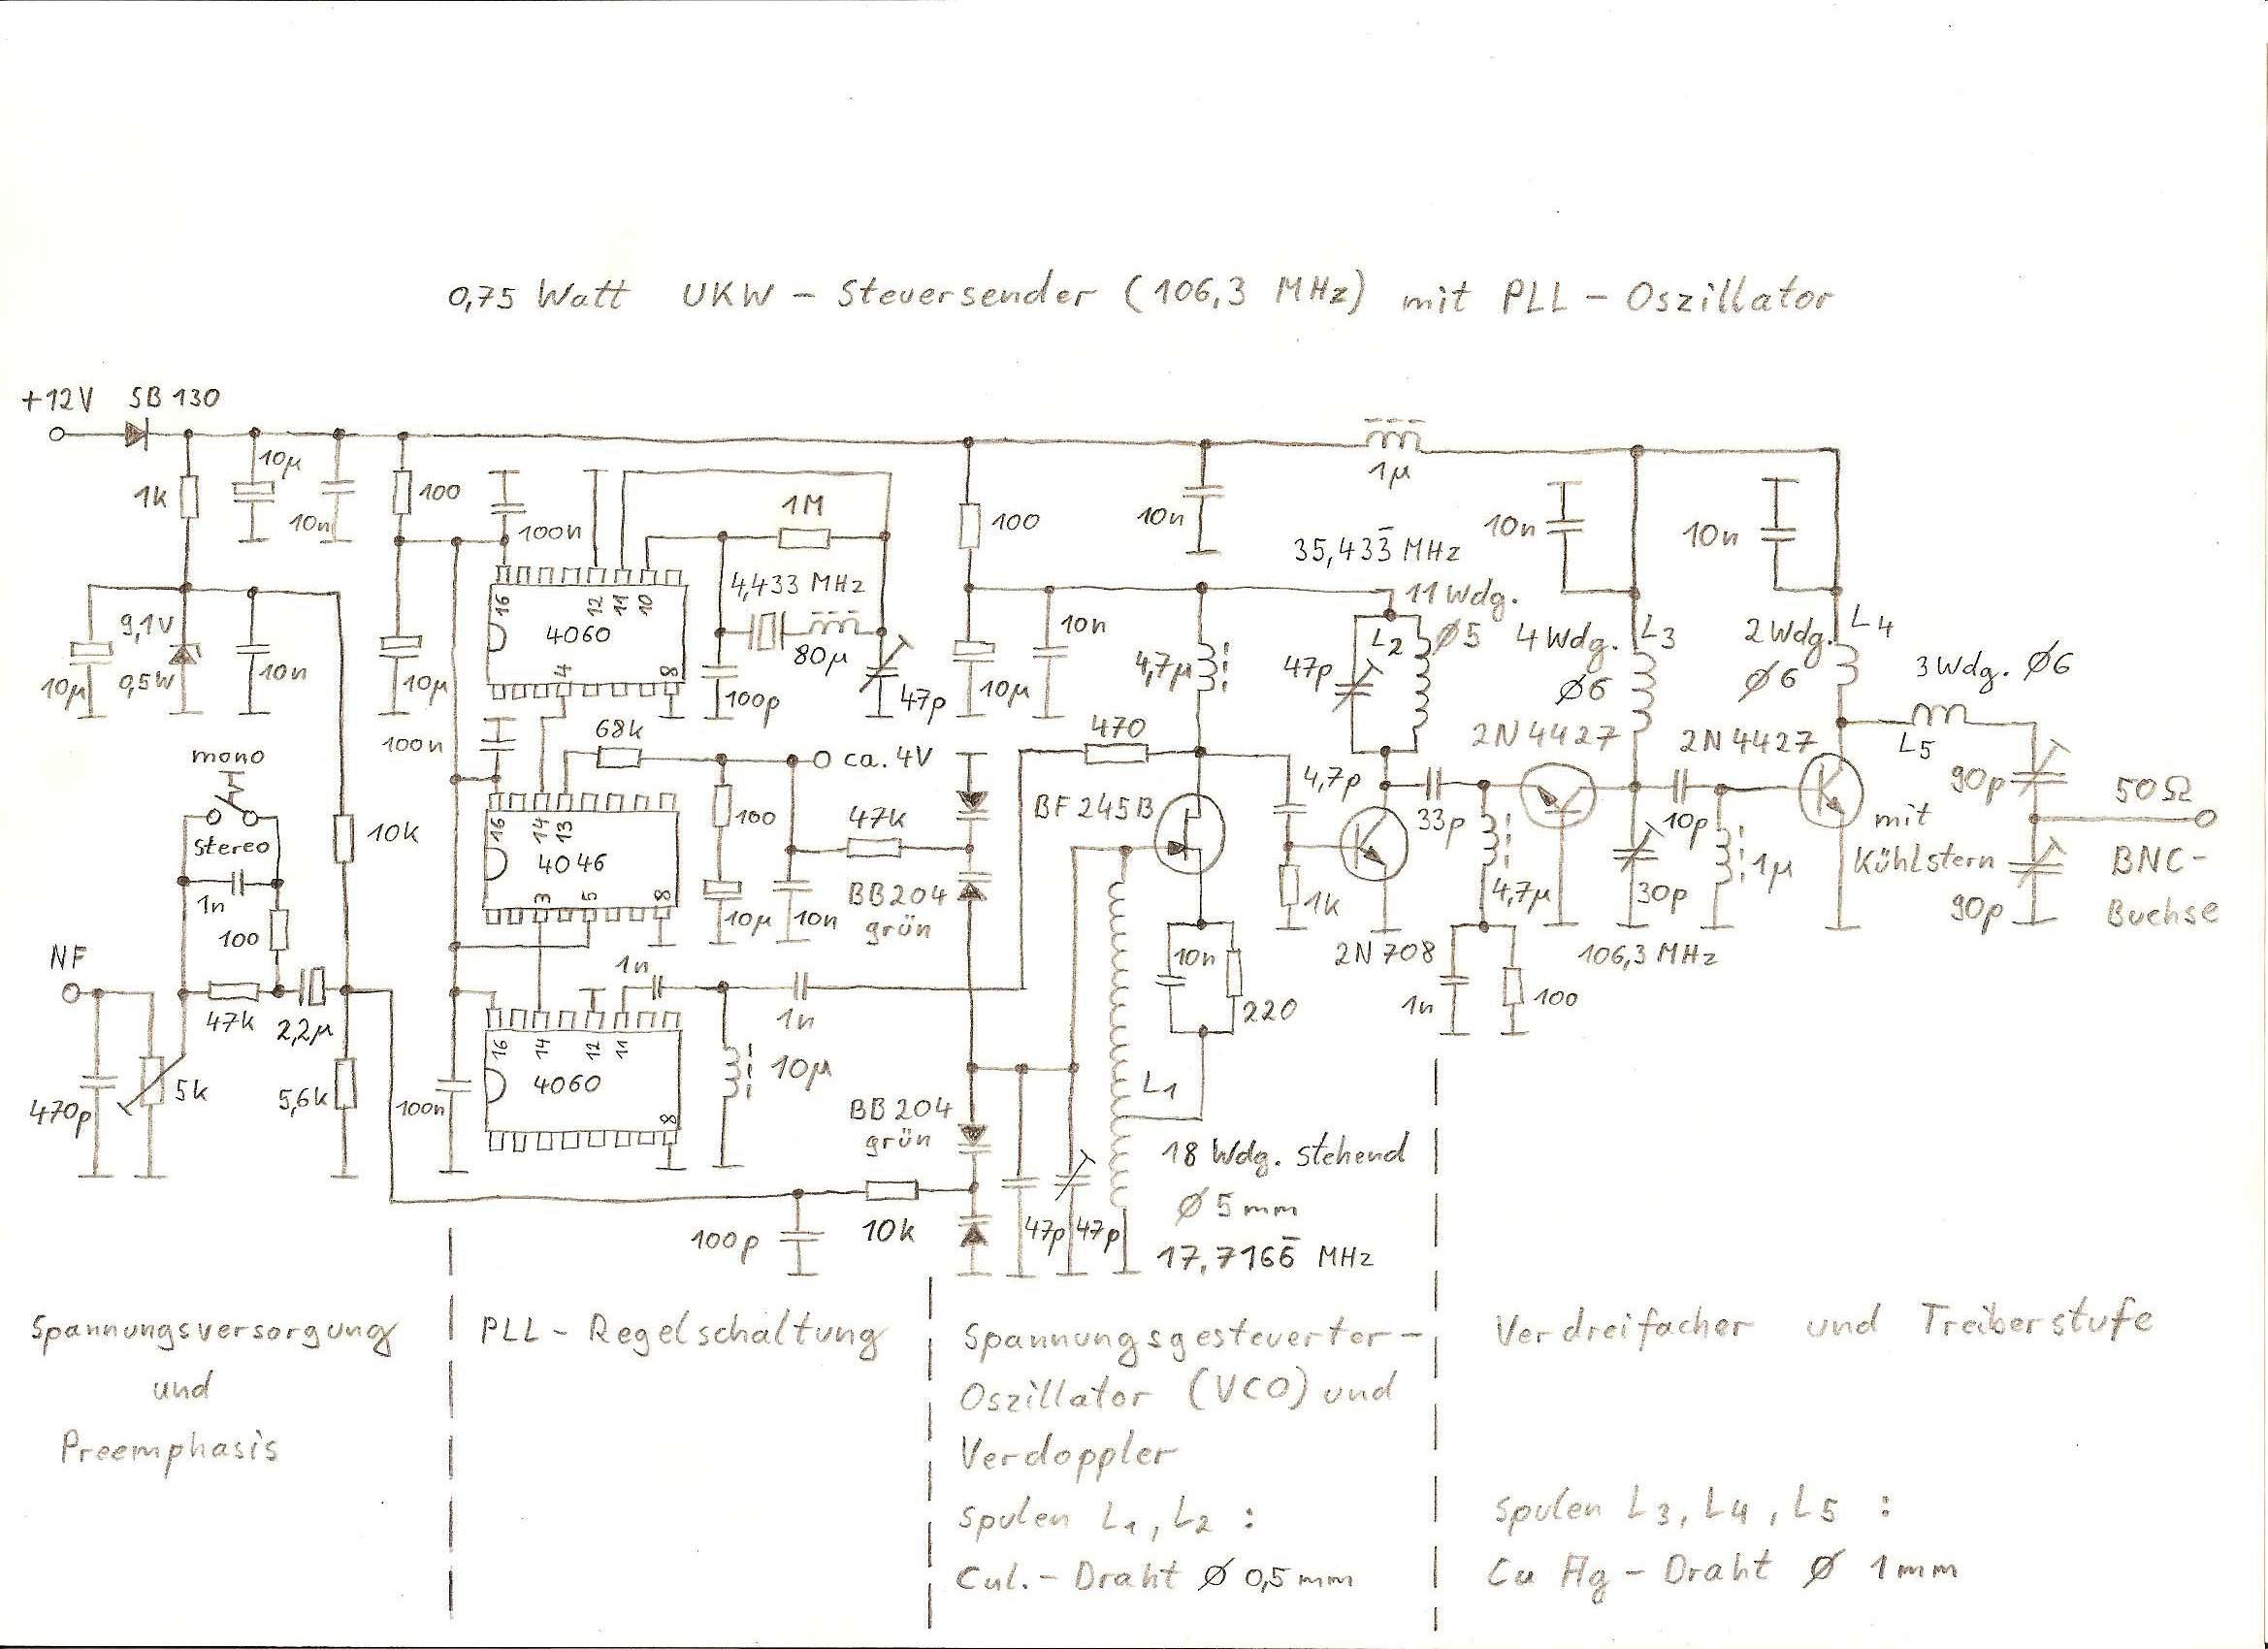 0,75 Watt UKW - Steuersender (106,3 MHz) mit PLL - Oszillator
+12V SB 130
10µ
1k
10n
100
100n
1M
100
10n
1µ
35,433̅ MHz
10n
10n
16 12 11 10
4060
4 8
4,433 MHz
80µ
100p
47p
9,1V
0,5W
10µ
10n
10µ
10n
10µ
4,7µ
47p
L2
11 Wdg.
Ø5
4 Wdg.
Ø6
L3
2 Wdg.
Ø6
L4
3 Wdg. Ø6
L5
100n
68k
ca. 4V
470
2N 4427
2N 4427
mono
stereo
1n
100
10k
16 14 13
4046
3 5 8
100
10µ
10n
47k
BB 204
grün
BF 245B
4,7p
33p
1k
2N 708
4,7µ
30p
10p
1µ
mit
Kühlstern
90p
90p
50Ω
BNC-
Buchse
106,3 MHz
1n
100
NF
47k
2,2µ
470p
5k
5,6k
100n
16 14 12 11
4060
8
1n
1n
10µ
10n
220
BB 204
grün
L1
18 Wdg. stehend
Ø 5 mm
17,7166̅ MHz
100p
10k
47p
47p
Spannungsversorgung
und
Preemphasis
PLL - Regelschaltung
Spannungsgesteuerter-
Oszillator (VCO) und
Verdoppler
Spulen L1, L2 :
CuL. - Draht Ø 0,5 mm
Verdreifacher und Treiberstufe
Spulen L3, L4, L5 :
Cu Ag - Draht Ø 1 mm